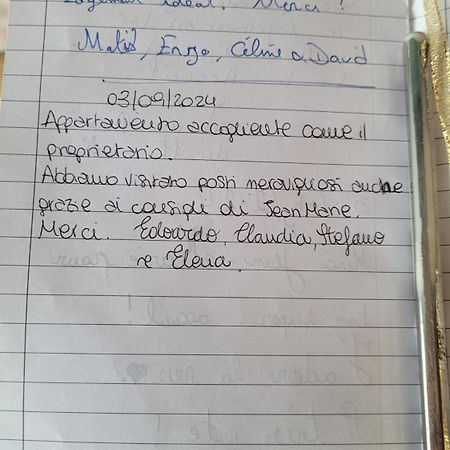 Logement idéal. Merci !
Malo, Enzo, Céline & David
03/09/2024
Appartamento accogliente come il
proprietario.
Abbiamo visitato posti meravigliosi anche
grazie ai consigli di Jean Marie.
Merci. Edoardo, Claudia, Stefano
e Elena.